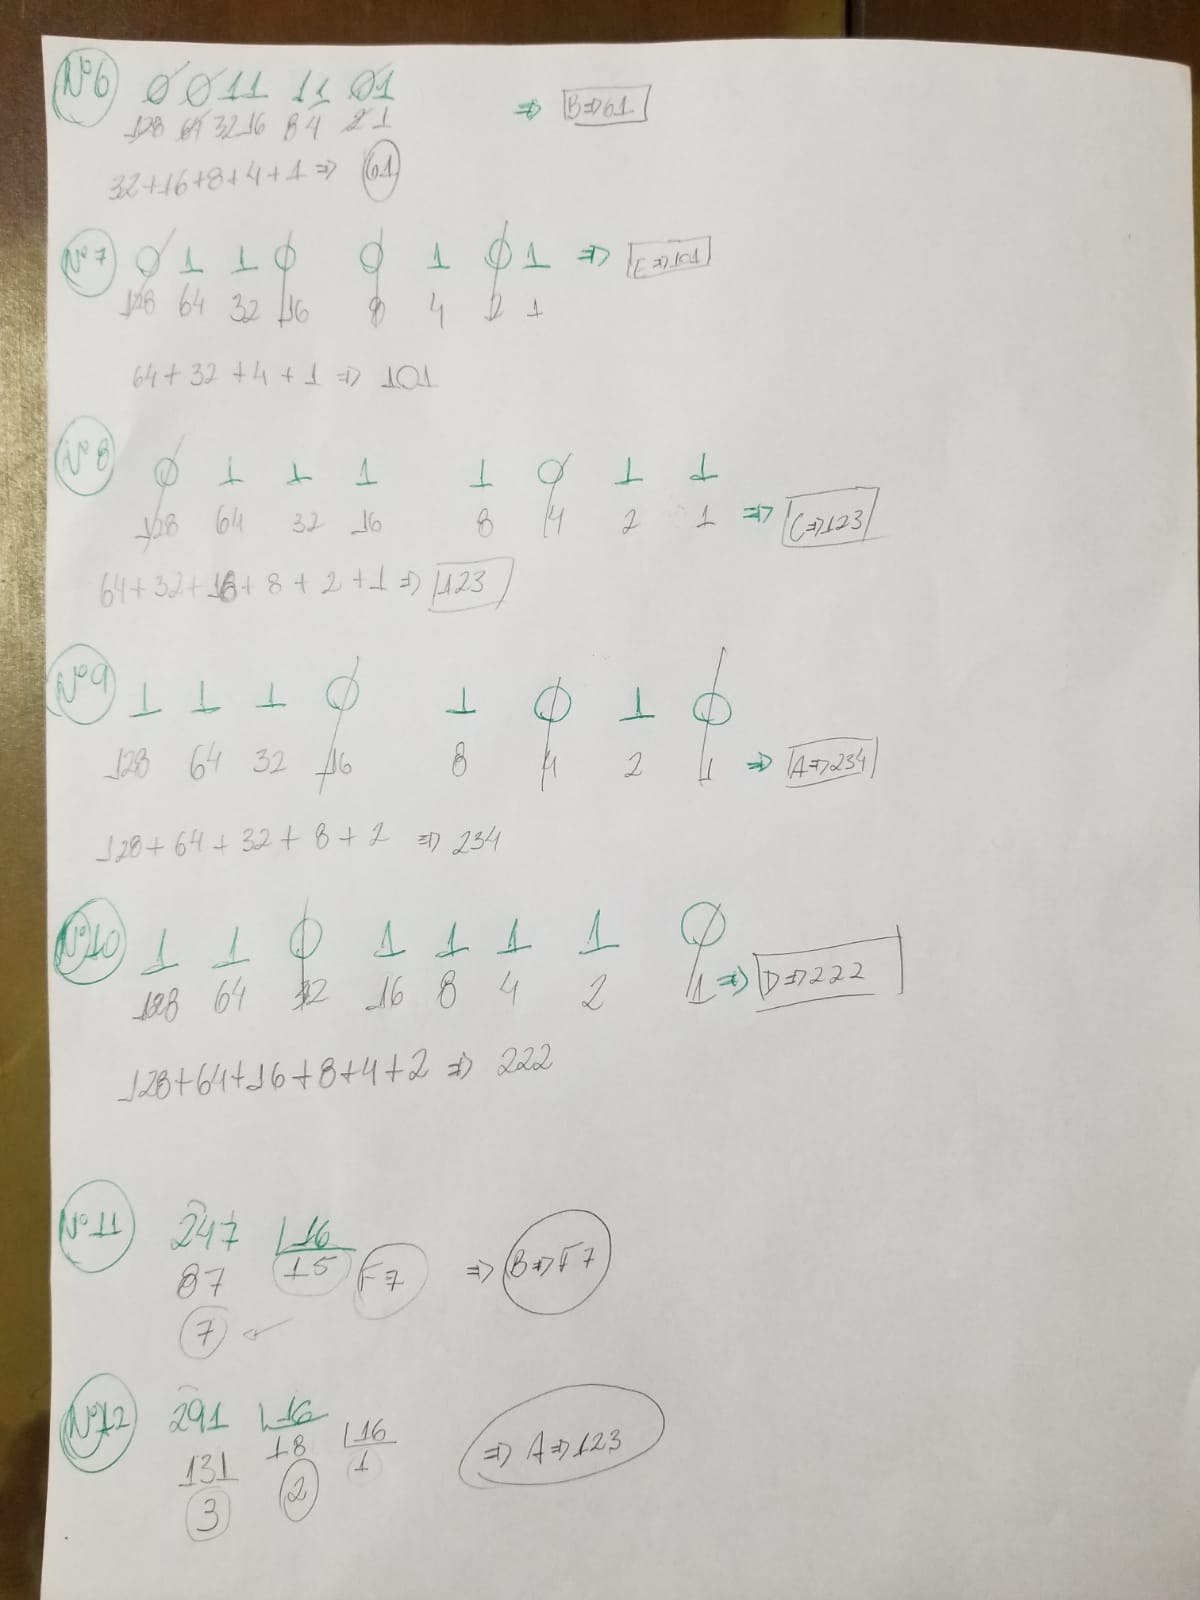 Nº6 0 0 1 1 1 1 0 1 => B=>61
128 64 32 16 8 4 2 1
32+16+8+4+1=> 61
Nº7 0 1 1 0 0 1 0 1 => E=>101
128 64 32 16 8 4 2 1
64+32+4+1=> 101
Nº8 0 1 1 1 1 0 1 1
128 64 32 16 8 4 2 1 => C=>123
64+32+16+8+2+1=> 123
Nº9 1 1 1 0 1 0 1 0
128 64 32 16 8 4 2 1 => A=>234
128+64+32+8+2 => 234
Nº10 1 1 0 1 1 1 1 0
128 64 32 16 8 4 2 1 => D=>222
128+64+16+8+4+2 => 222
Nº11 247 16
87 15 F7 => B=>F7
7
Nº12 291 16
131 18 16 => A=>123
3 2 1